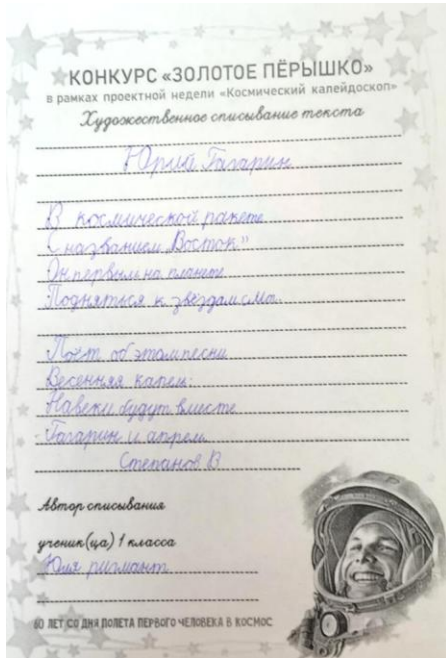 КОНКУРС «ЗОЛОТОЕ ПЁРЫШКО»
в рамках проектной недели «Космический калейдоскоп»
Художественное списывание текста
Юрий Гагарин
В космической ракете
С названием „Восток"
Он первым на планете
Подняться к звёздам смог.
Поёт об этом песни
Весенняя капель:
Навеки будут вместе
Гагарин и апрель.
Степанов В
Автор списывания
ученик(ца) 1 класса
Юля
60 ЛЕТ СО ДНЯ ПОЛЕТА ПЕРВОГО ЧЕЛОВЕКА В КОСМОС